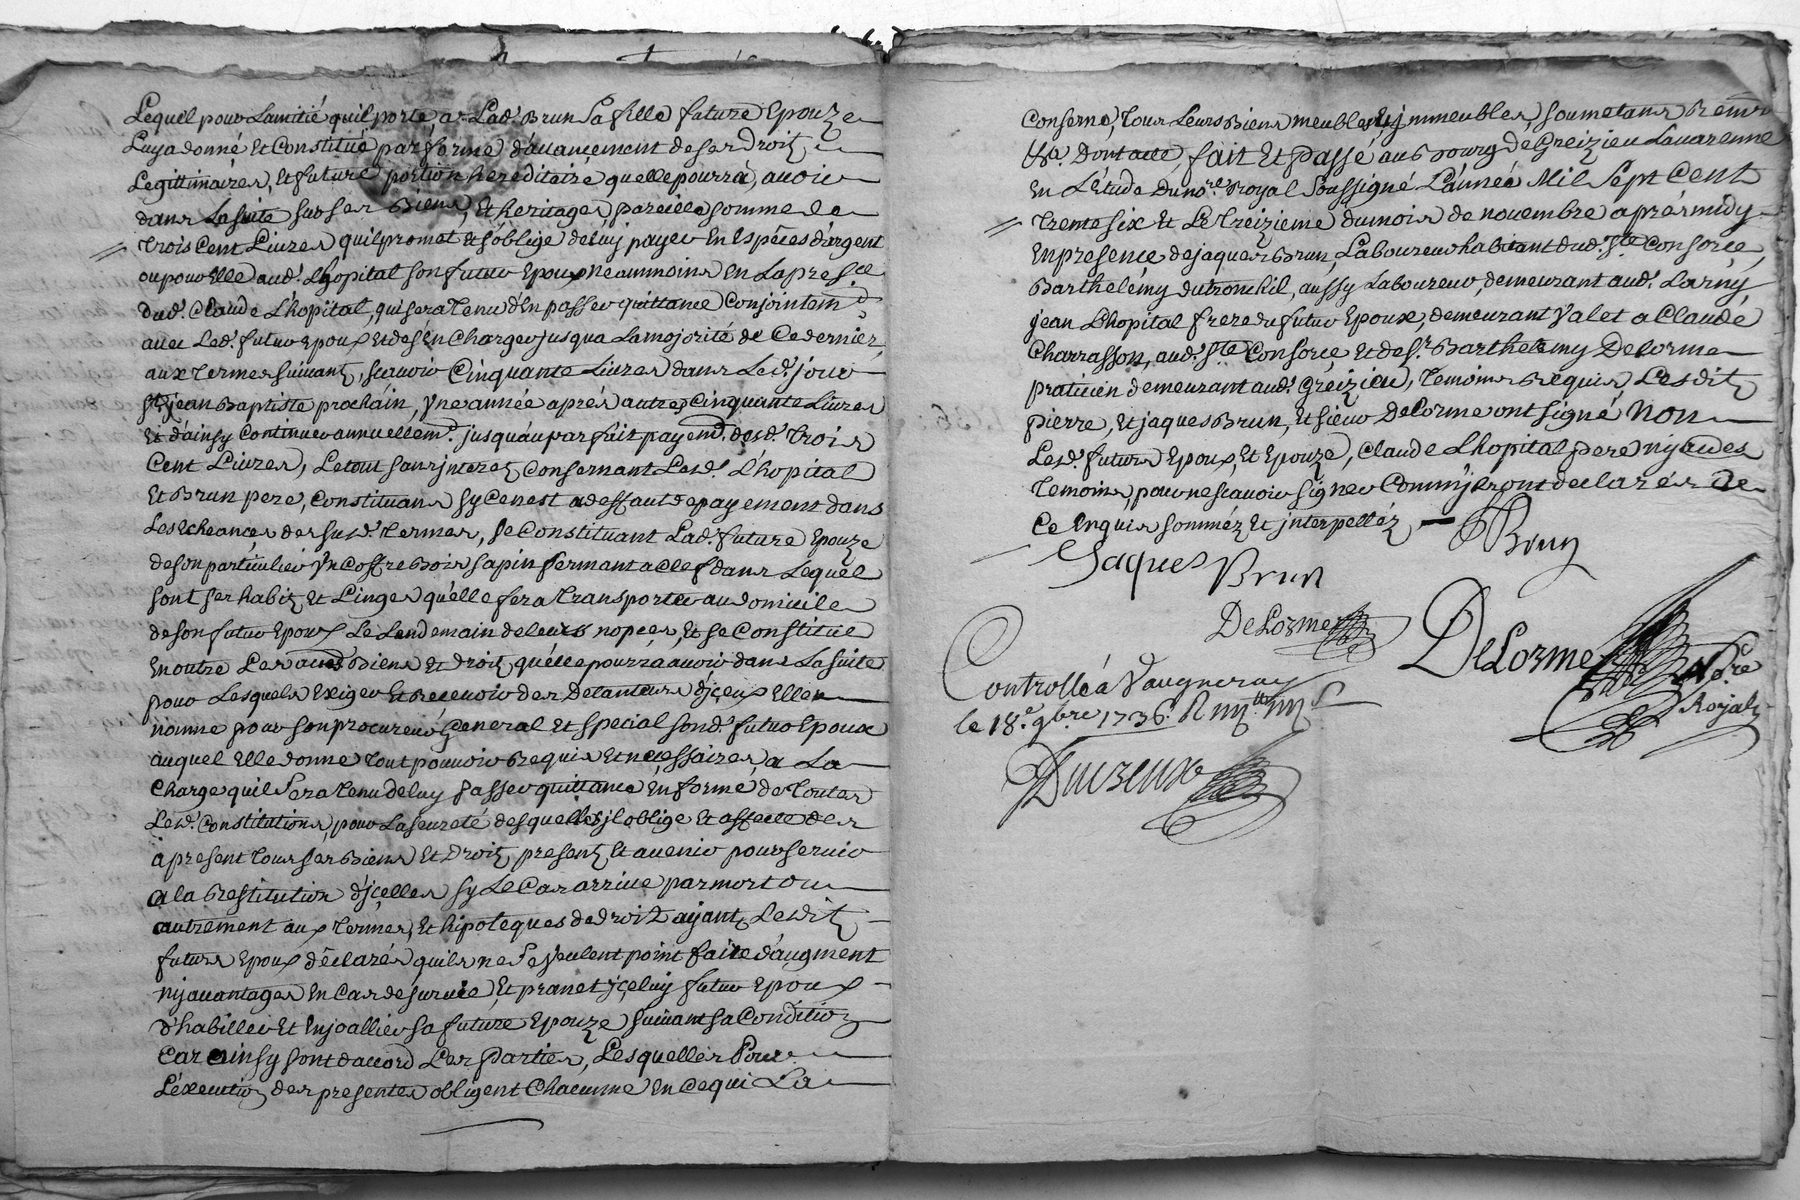 Lequel pour Lamitié quil porte a Lad. Brun Sa fille future Epouze
Luy a donné Et Constitué par forme d'auancement de ses Droits
Legittimaires, Et future portion hereditaire quelle pourra, auoir
dans La suite sur ses Biens, Et heritages pareille somme de
Trois Cent Liures quil promet Et s'oblige de luy payer En Espéces d'argent
ou pour Elle aud. Lhopital son futur Epoux neanmoins En La presce
dud. Claude L'hopital, qui sera tenu d'En passer quittance Conjointemt
auec Led. futur Epoux Et des En Charger jusqua La majorité de Ce dernier,
aux termes suiuant, scauoir Cinquante Liures dans Led. jour
St jean Baptiste prochain, Vne année aprés autres Cinquante Liures
Et d'ainsy Continuer annuellemt. jusquau parfait payemt. desd. Trois
Cent Liures, Le tout sans jnterets Consernant Lesd. L'hopital
Et Brun pere, Constituans sy Ce nest a deffaut de payement dans
Les Echeances des susd. Termes, Se Constituant Lad. future Epouze
de son particulier Vn Coffre Bois sapin fermant a Clef dans Lequel
sont ses habits Et Linges qu'elle fera transporter au domicile
de son futur Epoux Le Lendemain de leurs nopces, Et se Constitue
En outre Les autres Biens Et Droits qu'elle pourra auoir dans La suite
pour Lesquels Exiger Et Receuoir des Detanteurs d'jceux Elle
nomme pour son procureur General Et special sond. futur Epoux
auquel Elle donne tout pouuoir Requis Et necessaires, a La
Charge quil Sera tenu de luy passer quittance En forme de toutes
Lesd. Constitutions, pour La seureté desquelles jl oblige Et affecte des
a present tous ses Biens Et Droits, presents Et auenir pour seruir
a la Restitution d'jcelles sy Le Cas arriue par mort ou
autrement aux termes, Et hipoteques de Droit ayants Lesdits
futurs Epoux déclarés quils ne se Veulent point faire d'augment
ny auantages En Cas de suruie, Et promet jceluy futur Epoux
d'habiller Et Enjoallier sa future Epouze suiuant sa Condition
Car ainsy sont d'accord Les parties, Lesquelles Pour
L'éxecution des presentes obligent Chacunne En Ce qui La
Conserne, tous Leurs Biens meubles Et jmmeubles soumetans Renon
&c. Dont acte fait Et passé au Bourg de Greizieu Lauarenne
En L'étude du nore. Royal Soussigné L'année Mil Sept Cent
Trente six Et Le treizieme du mois de nouembre aprés midy
En presence de jaques Brun, Laboureur habitant dud. Ste Consorce,
Barthelémy dutronchil, aussy Laboureur, demeurant aud. Larny
jean Lhopital frere du futur Epoux, demeurant Valet a Claude
Charrasson, aud. Ste Consorce, Et de Sr. Barthelemy Delorme
praticien demeurant aud. Greizieu, temoins Requis, Lesdits
pierre, Et jaques Brun, Et sieur Delorme ont signé Non
Lesd. futurs Epoux, Et Epouze, Claude Lhopital pere ny autres
temoins, pour ne scauoir signer Comm'jls ont declarés de
Ce Enquis sommés Et jnterpellés
Brun
Jaques Brun
DeLorme
DeLorme Nore
Royal
Controllé à Vaugneray
le 18e. 9bre 1736. R
Dureux